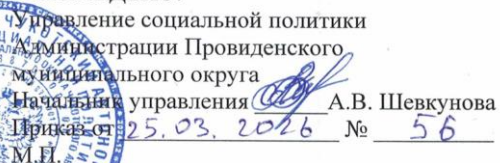 Управление социальной политики
Администрации Провиденского
муниципального округа
Начальник управления А.В. Шевкунова
Приказ от 25.03.2026 № 56
М.П.